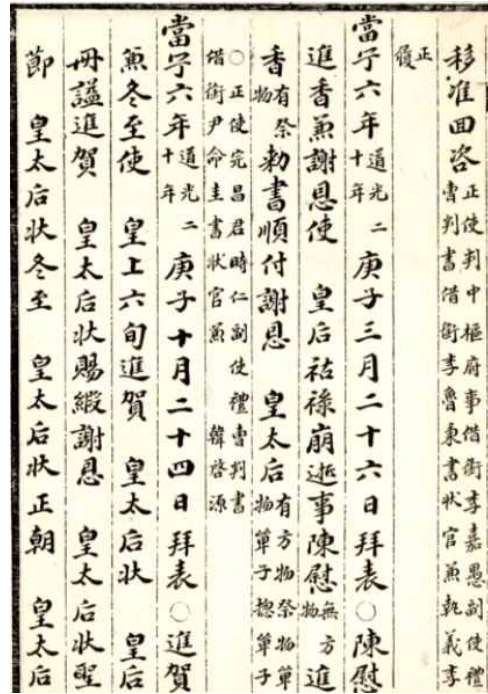 移准回咨正使判中樞府事借銜李嘉愚副使禮曹判書借銜李魯秉書狀官兼執義李
正履
當宁六年道光二十年庚子三月二十六日拜表〇陳慰
進香兼謝恩使 皇后祜祿崩逝事陳慰無方物進
香有祭物勅書順付謝恩 皇太后有方物祭物單物單子摠單子
〇正使完昌君時仁副使禮曹判書借銜尹命圭書狀官兼 韓啓源
當宁六年道光二十年庚子十月二十四日拜表〇進賀
兼冬至使 皇上六旬進賀 皇太后狀 皇后
冊諡進賀 皇太后狀賜緞謝恩 皇太后狀聖
節 皇太后狀冬至 皇太后狀正朝 皇太后